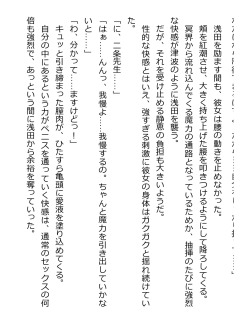 浅田を励ます間も、彼女は腰の動きを止めなかった。
頬を紅潮させ、大きく持ち上げた腰を叩きつけるようにして降ろしてくる。
冥界から流れ込んでくる魔力の通路となっているためか、抽挿のたびに強烈
な快感が津波のように浅田を襲う。
だが、それを受け止める静恵の負担も大きいようだ。
性的な快感とはいえ、強すぎる刺激に彼女の身体はガクガクと揺れ続けてい
る。
「に、二条先生……」
「はぁ……んんっ、我慢よ……我慢するの。ちゃんと魔力を引き出していかな
いと……」
「わ、分かって……ますけどっ！」
キュッと引き締まった膣肉が、ひたすら亀頭に愛液を塗り込めてくる。
自分の中にあるという力がペニスを通っていく快感は、通常のセックスの何
倍も強烈で、あっという間に浅田から余裕を奪っていった。